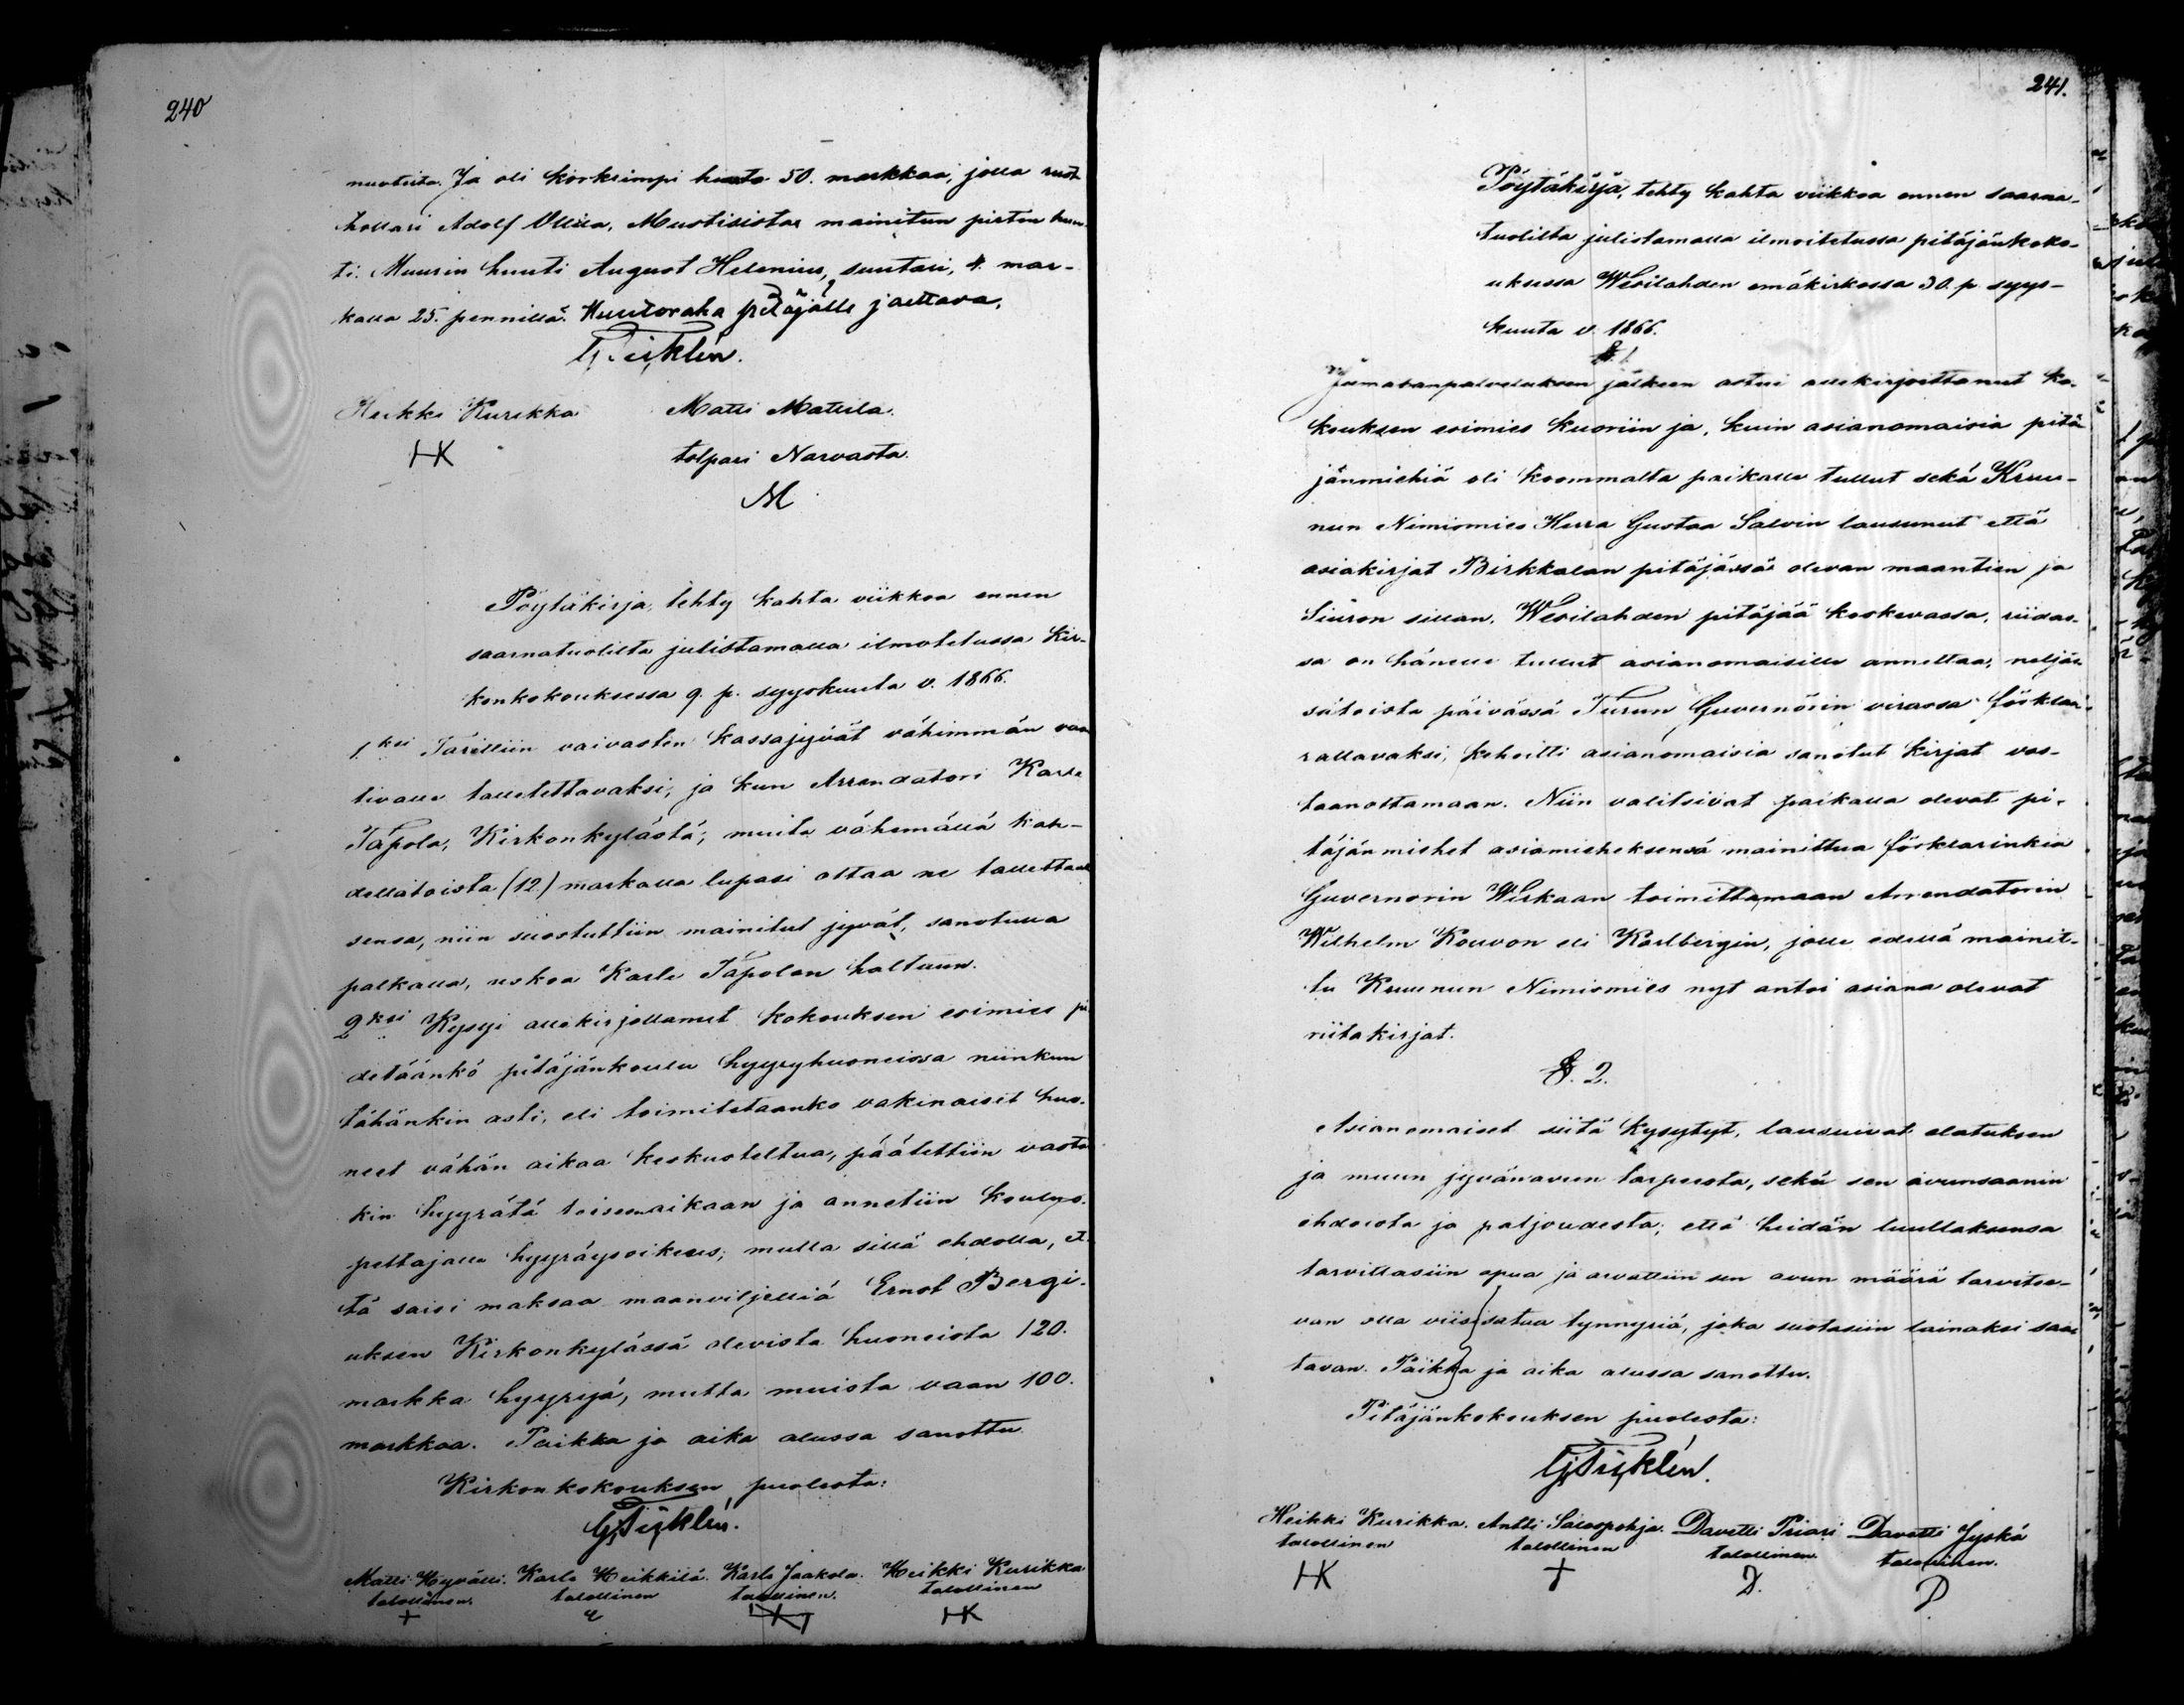 240
nuoteita. Ja oli korkeimpi huuto 50. markkaa, jolla rust
hollari Adolf Ollila, Mustisista mainitun pirtin huu
ti. Muurin huuti August Helenius, suutari, 4. mar-
kalla 25. pennillä. Huutoraha pitäjälle jaettava.
G. Fr. Ticklén.
Heikki Kurikka Matti Mattila.
HK tolpari Narvasta.
M
Pöytäkirja, tehty kahta viikkoa ennen
saarnatuolilta julistamalla ilmotetussa Kir-
konkokouksessa 9. p. syyskuuta v. 1866.
1ksi Tarittiin vaivasten kassajyvät vähimmän vaa
tivalle talletettavaksi; ja kun Arrendatori Karle
Tapola, Kirkonkylästä; muita vähemällä kah-
dellatoista (12) markalla lupasi ottaa ne tallettaak
sensa, niin suostuttiin mainitut jyvät, sanotulla
palkalla, uskoa Karle Tapolan haltuun.
2ksi Kysyi allekirjottamut kokouksen esimies pi
detäänkö pitäjänkoulu hyyryhuoneissa niinkuu
tähänkin asti, eli toimitetaanko vakinaiset huo.
neet vähän aikaa keskusteltua, päätettiin vasta
kin hyyrätä toiseenaikaan ja annetiin koulyo.
pettajalle hyyräysoikeus; mutta sillä ehdolla, et-
tä saisi maksaa maanviljelliä Ernst Bergi-
uksen Kirkonkylässä olevista huoneista 120.
markka hyyryä, mutta muista vaan 100.
markkaa. Paikka ja aika alussa sanottu
Kirkonkokouksen puolesta:
G. Fr. Ticklén.
Matti Hyvätti. Karle Heikkilä. Karle Jaakola. Heikki Kurikka
talollinen. talollinen talollinen. talollinen
+ HK
241.
Pöytäkirja, tehty kahta viikkoa ennen saarna-
tuolilta julistamalla ilmoitetussa pitäjänkoko-
uksessa Wesilahden emäkirkossa 30. p. syys-
kuuta v. 1866.
§. 1.
Jumalanpalveluksen jälkeen astui allekirjoittamut ko.
kouksen esimies kuoriin ja, kuin asianomaisia pitä
jänmiehiä oli koommalta paikalle tullut sekä Kruu-
nun Nimismies Herra Gustaa Salvin lausunut että
asiakirjat Birkkalan pitäjässä olevan maantien ja
Siuron sillan, Wesilahden pitäjää koskevassa, riidas-
sa on hänelle tullut asianomaisille annettaa, neljäs
sätoista päivässä Turun Guvernörin virassa förklaa-
rattavaksi, kehoitti asianomaisia sanotut kirjat vas-
taanottamaan. Niin valitsivat paikalla olevat pi-
täjänmiehet asiamieheksensä mainittua förklarinkia
Guvernorin Wirkaan toimittamaan Arrendatorin
Wilhelm Kouvon eli Karlbergin, jolle edellä mainit-
tu Kruunun Nimismies nyt antoi asiana olevat
riitakirjat.
§. 2.
Asianomaiset siitä kysytyt, lausuivat elatuksen
ja muun jyvänavun tarpeesta, sekä sen avunsaanin
ehdoista ja paljoudesta; että heidän luullaksensa
tarvittasiin apua ja arvattiin sen avun määrä tarvitse-
van olla viisisataa tynnyriä, joka suotasiin lainaksi saa
tavan. Paikka ja aika alussa sanottu.
Pitäjänkokouksen puolesta:
G. Fr. Ticklén.
Heikki Kurikka. Antti Saiospohja. Davetti Priari Davetti Jyskä
talollinen talollinen talollinen. talollinen.
HK + D. D